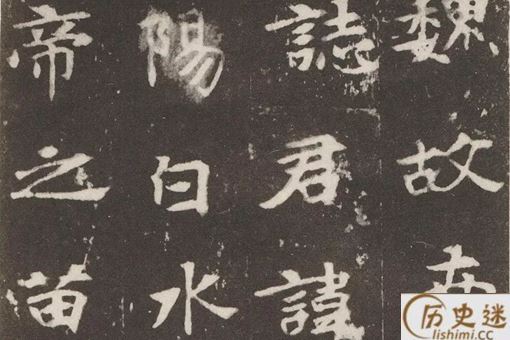 魏故南
誌君諱
陽白水
帝之苗
历史迷
lishimi.cc